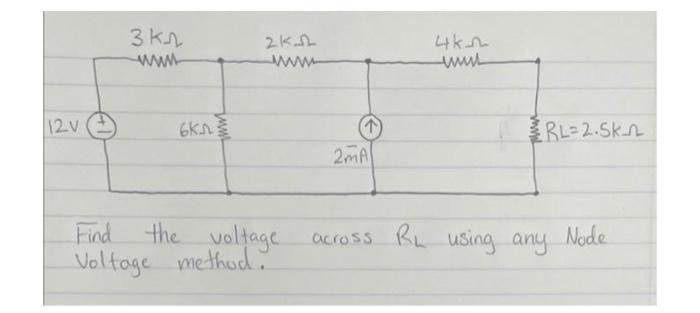 3kΩ 2kΩ 4kΩ
12V 6kΩ RL=2.5kΩ
2mA
Find the voltage across RL using any Node
Voltage method.